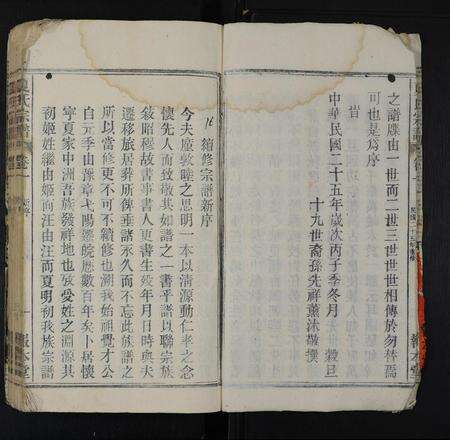 之譜牒由一世而二世三世世世相傳於勿替焉
可也是爲序
皆
中華民國二十五年歲次丙子季冬月 穀旦
十九世裔孫先祥薰沐敬撰
續修宗譜新序
今夫慶敦睦之思明一本以淸源動仁孝之念
懷先人而致敬其如譜之一書乎譜以聯宗族
敍昭穆故書事書人更書生歿年月日時與夫
遷移旅居葬所俾垂諸永久而不忘此修譜之
所以當修更不可不續修也溯我始祖覺才公
自元季由豫章弋陽遷皖歷數百年矣卜居懷
寧夏家中洲吾族發祥地也攷受姓之淵源其
初姬姓繼由姬而汪由汪而夏明初我族宗譜
報本堂